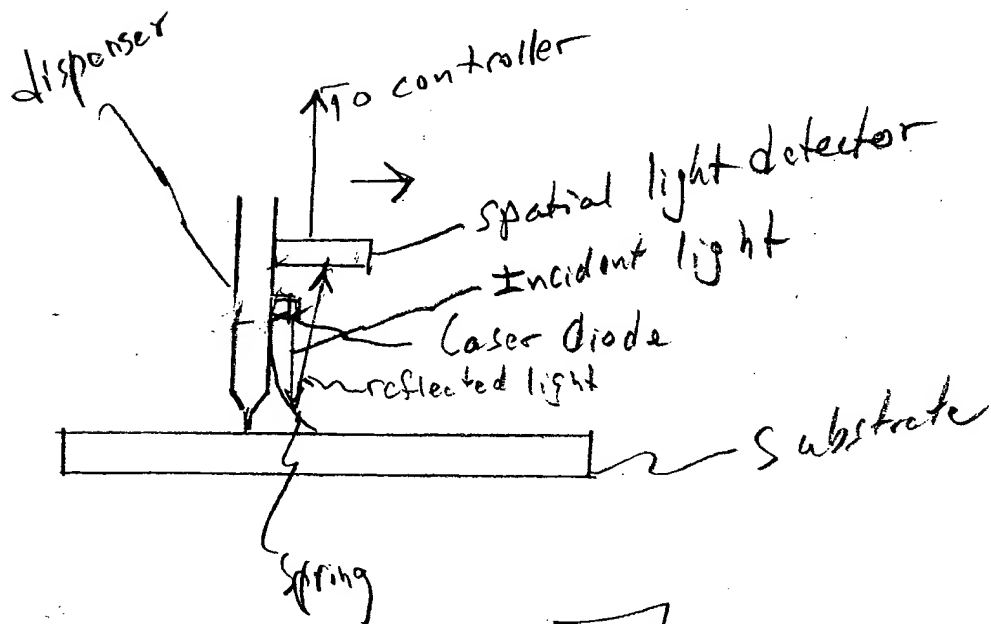 dispenser
To controller
spatial light detector
Incident light
Laser diode
reflected light
Substrate
Spring